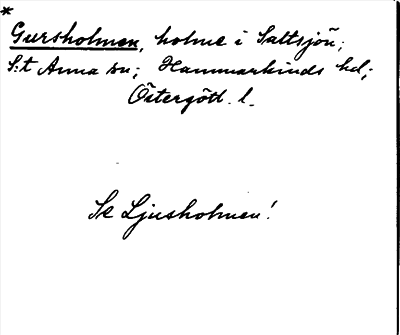 *
Gursholmen, holme i Saltsjön;
S:t Anna sn; Hammarkinds hd;
Östergötl. l.
Se Ljusholmen!